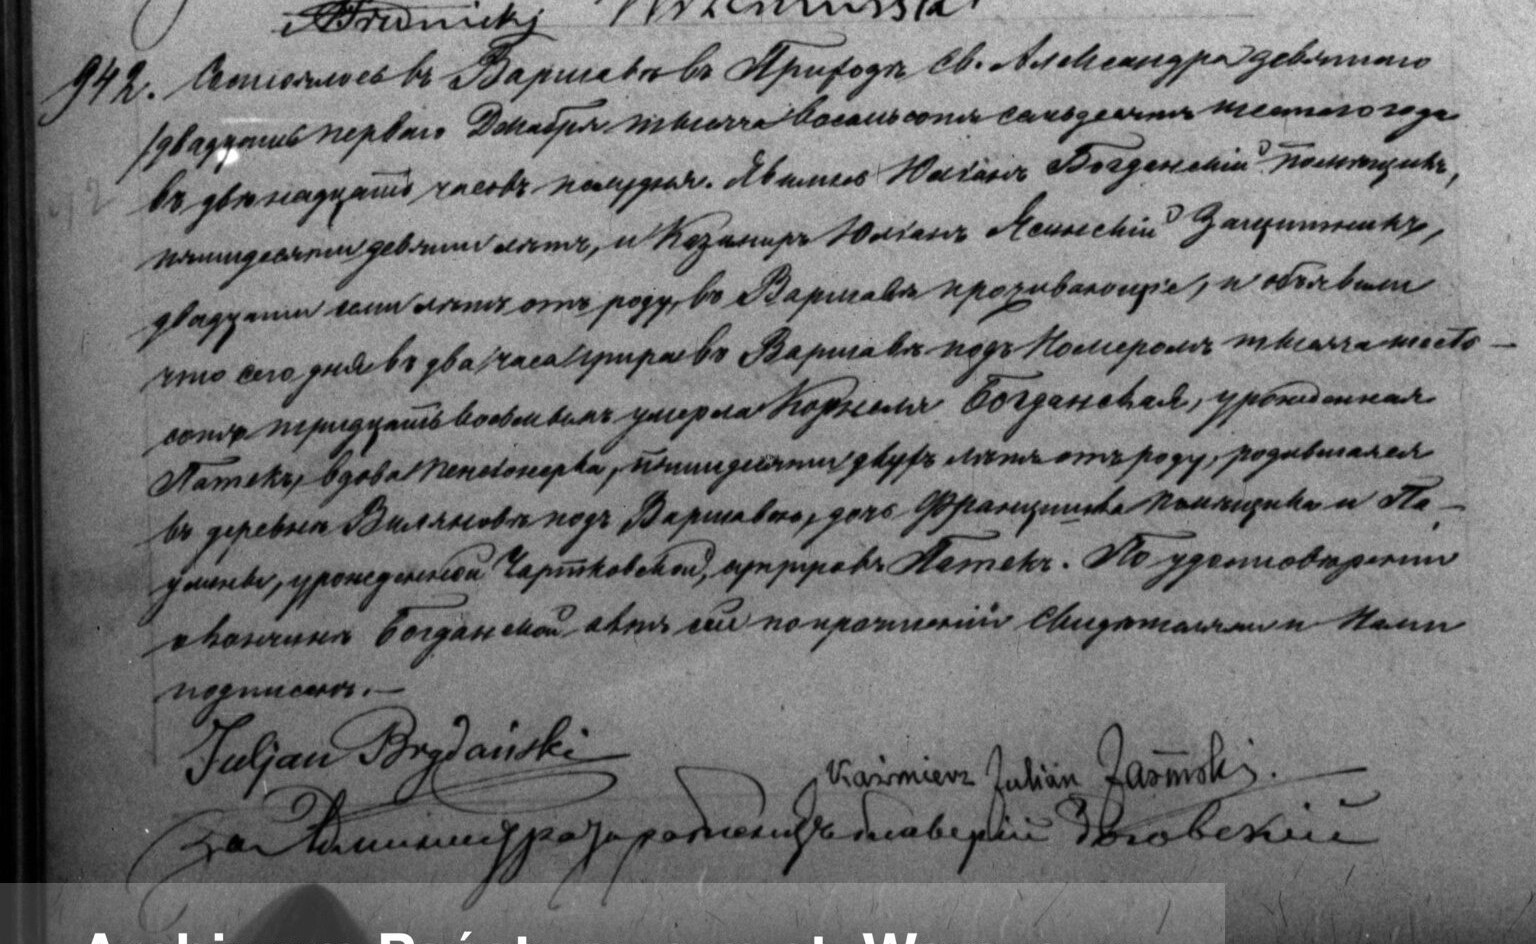 942. Состоялось въ Варшавѣ въ Приходѣ Св. Александра девятаго
/двадцать перваго Декабря тысяча восемьсотъ семьдесятъ шестаго года
въ двѣнадцать часовъ полудня. Явились Юліанъ Богданскій помѣщикъ,
пятидесяти девяти лѣтъ, и Казимиръ Юліанъ Ясинскій Защитникъ,
двадцати семи лѣтъ отъ роду, въ Варшавѣ проживающіе, и объявили
что сего дня въ два часа утра въ Варшавѣ подъ Номеромъ тысяча шесть-
сотъ тридцать восьмымъ умерла Корнеля Богданская, урожденная
Патекъ, вдова пенсіонерка, пятидесяти двухъ лѣтъ отъ роду, родившаяся
въ деревнѣ Виляновѣ подъ Варшавою, дочь Францишка помѣщика и Па-
улины, урожденной Чартковской, супруговъ Патекъ. По удостовѣреніи
о кончинѣ Богданской актъ сей по прочтеніи свидѣтелями и Нами
подписанъ.—
Juljan Bogdański
Kazimierz Julian Jasiński.
За Администратора